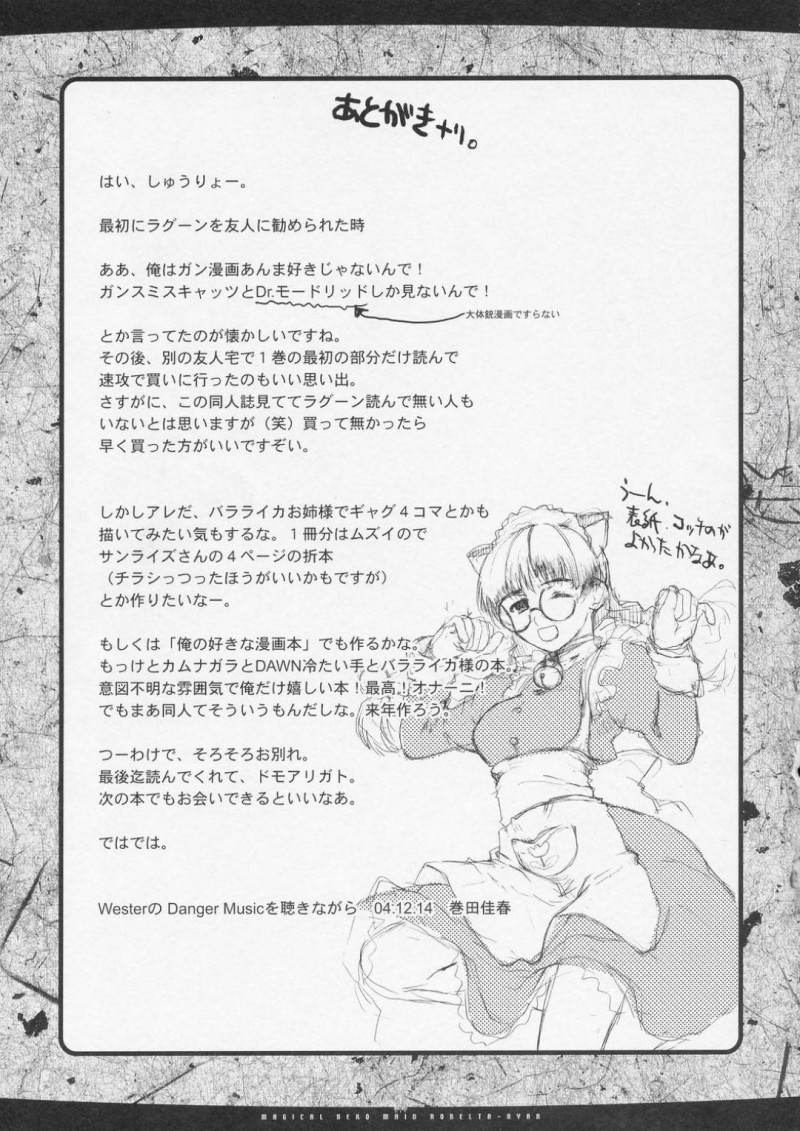 あとがきナリ。
はい、しゅうりょー。
最初にラグーンを友人に勧められた時
ああ、俺はガン漫画あんま好きじゃないんで！
ガンスミスキャッツとDr.モードリッドしか見ないんで！
大体銃漫画ですらない
とか言ってたのが懐かしいですね。
その後、別の友人宅で１巻の最初の部分だけ読んで
速攻で買いに行ったのもいい思い出。
さすがに、この同人誌見ててラグーン読んで無い人も
いないとは思いますが（笑）買って無かったら
早く買った方がいいですぞい。
しかしアレだ、バラライカお姉様でギャグ４コマとかも
描いてみたい気もするな。１冊分はムズイので
サンライズさんの４ページの折本
（チラシっつったほうがいいかもですが）
とか作りたいなー。
うーん、
表紙、コッチのが
よかったかなあ。
もしくは「俺の好きな漫画本」でも作るかな。
もっけとカムナガラとDAWN冷たい手とバラライカ様の本。
意図不明な雰囲気で俺だけ嬉しい本！最高！オナーニ！
でもまあ同人てそういうもんだしな。来年作ろう。
つーわけで、そろそろお別れ。
最後迄読んでくれて、ドモアリガト。
次の本でもお会いできるといいなあ。
ではでは。
Westerの Danger Musicを聴きながら　04.12.14　巻田佳春
MAGICAL NEKO MAID ROBELTA-NYAN